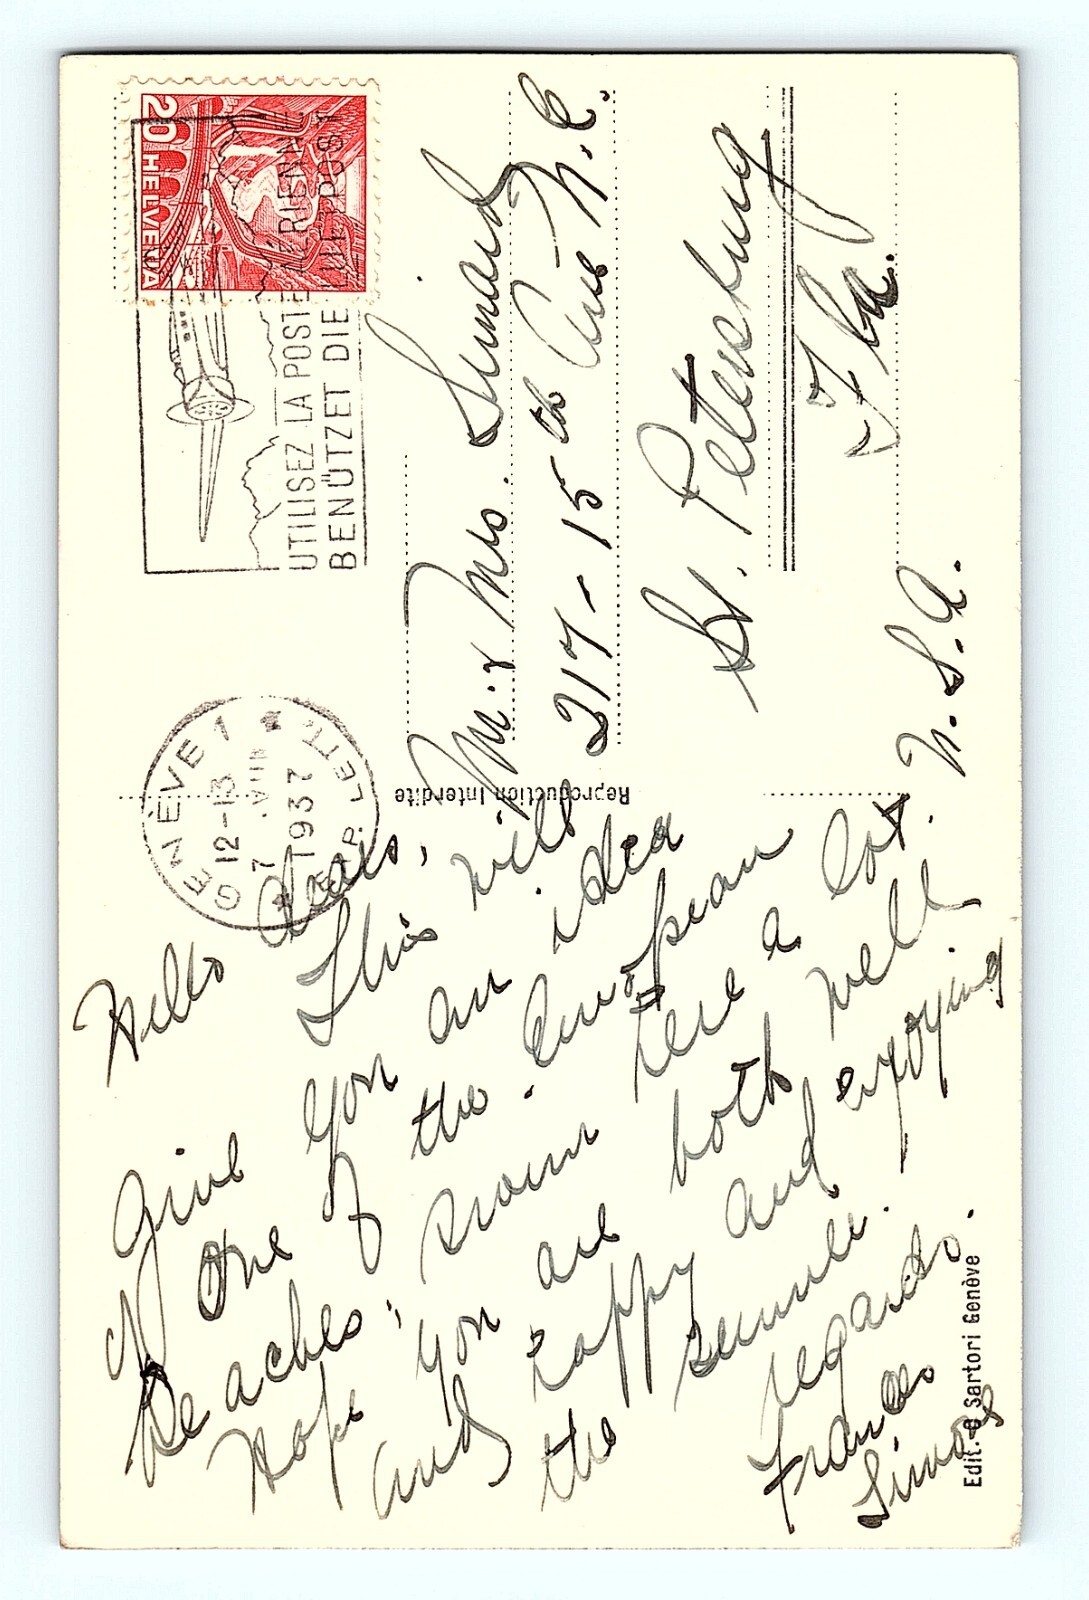 Hello dears,
This will
give you an idea
of one of the European
beaches, swim here a lot.
Hope you are both well
and happy and enjoying
the summer.
regards.
Frances
Simone
GENÈVE 1
12-13
7.VIII
1937
EXP. LETTR.
UTILISEZ LA POSTE AÉRIENNE
BENÜTZET DIE LUFTPOST
20 HELVETIA
Mr. & Mrs. Simard
217-15th Ave N.E.
St. Petersburg
Fla.
U.S.A.
Reproduction Interdite
Edit. O Sartori Genève